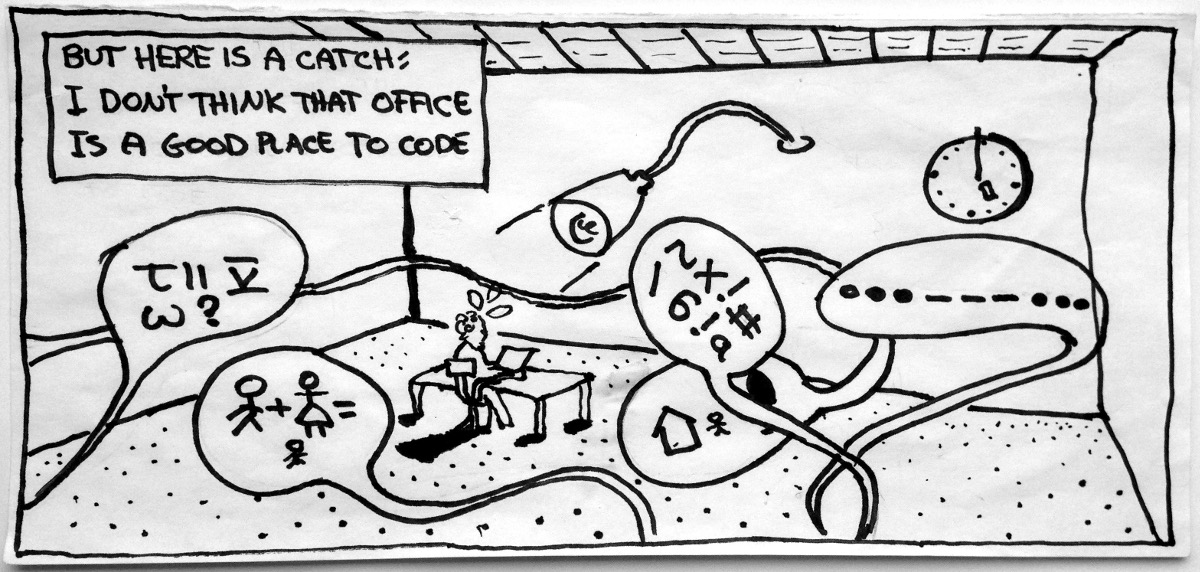 BUT HERE IS A CATCH:
I DON'T THINK THAT OFFICE
IS A GOOD PLACE TO CODE
τ II V
ω?
+ =
●●●---●●●